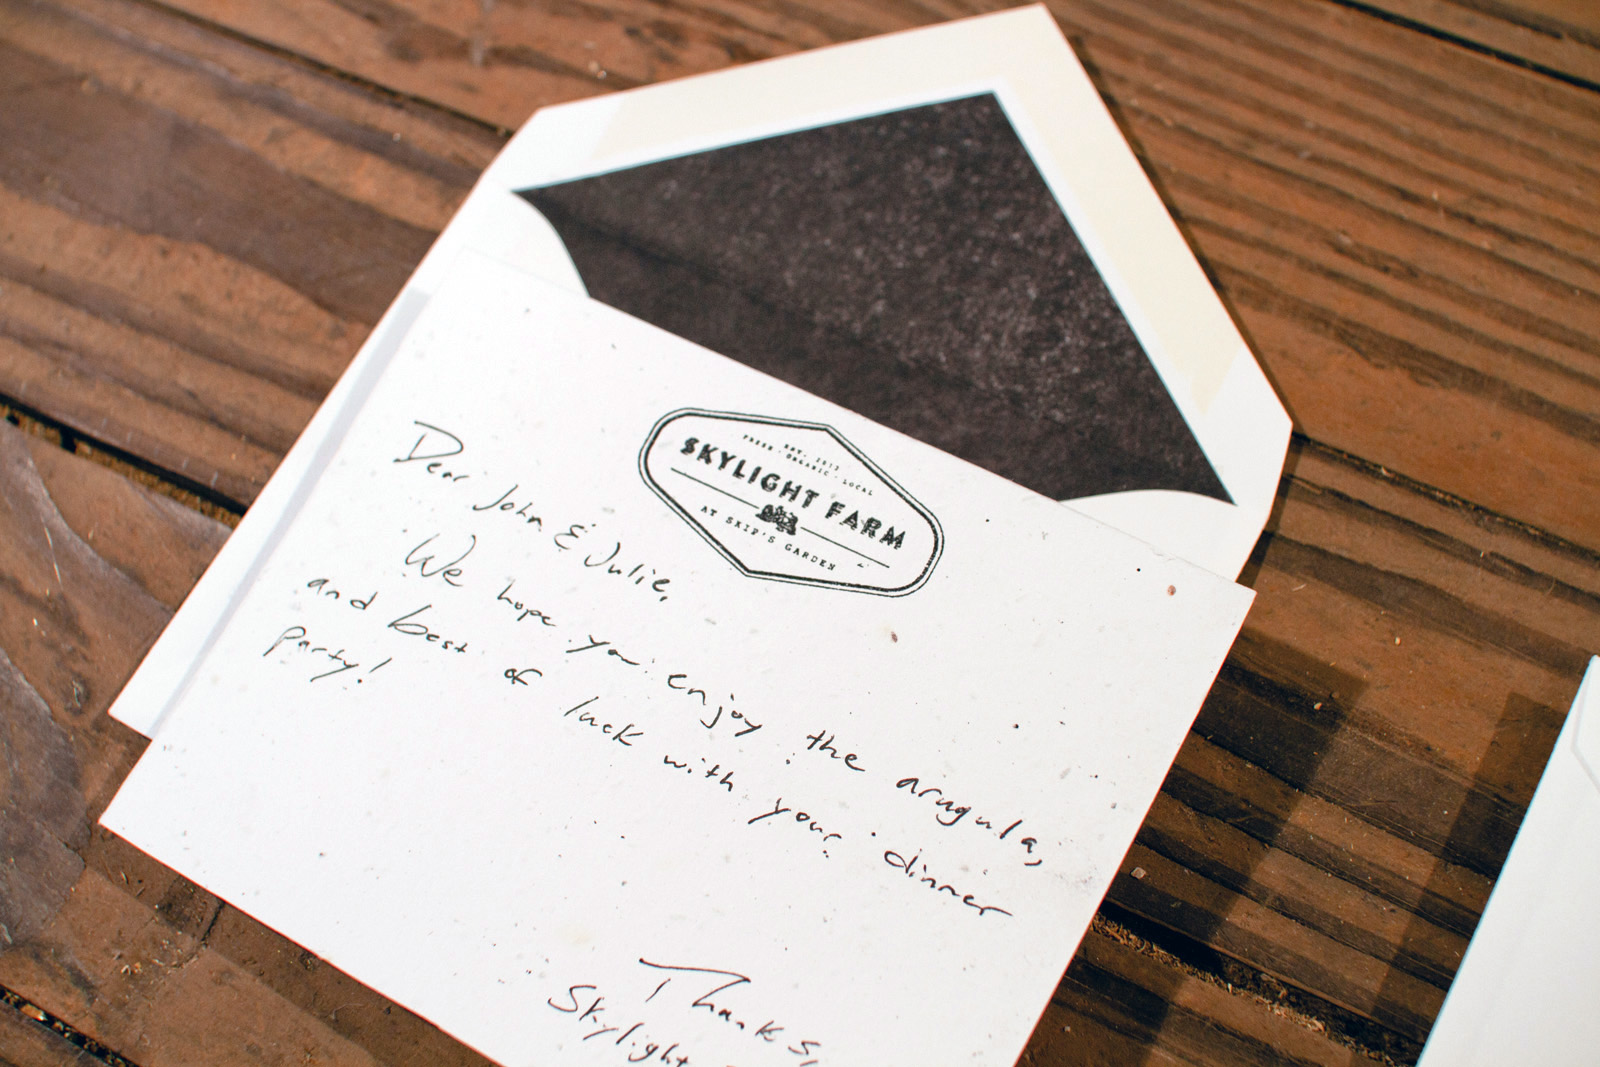 EST. 2012
FRESH · ORGANIC · LOCAL
SKYLIGHT FARM
AT SKIP'S GARDEN
Dear John & Julie,
We hope you enjoy the arugula,
and best of luck with your dinner
party!
Thanks,
Skylight